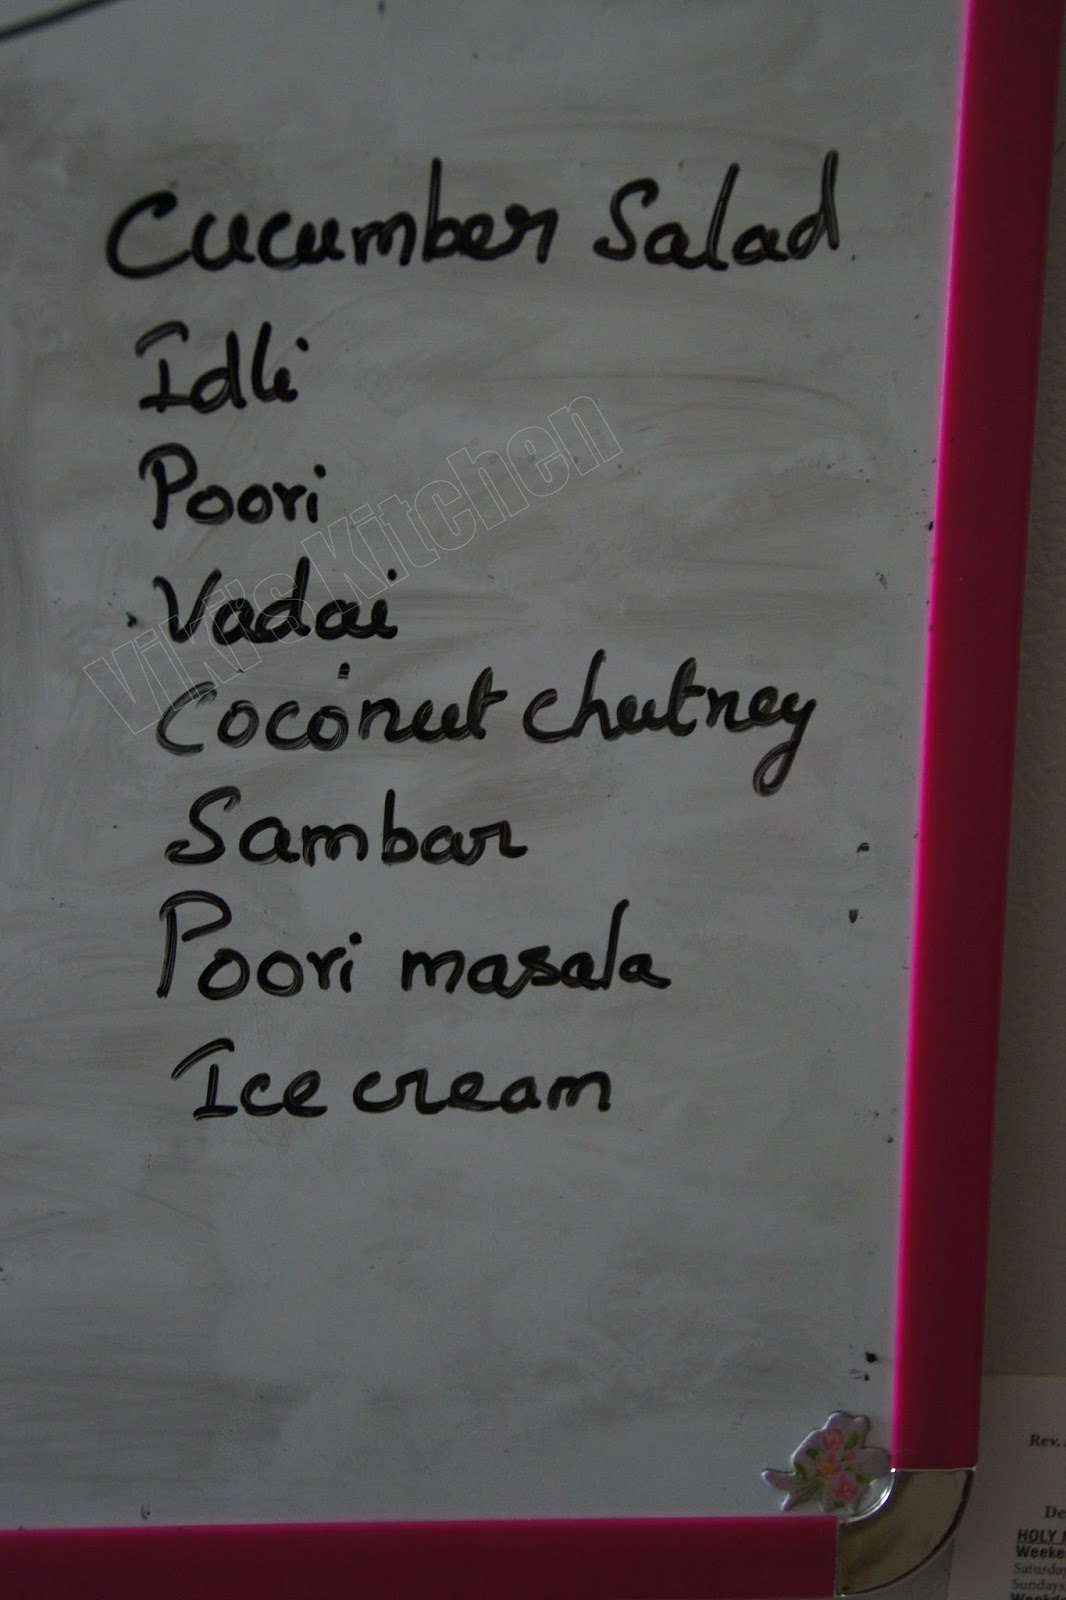 Cucumber Salad
Idli
Poori
Vadai
Coconut chutney
Sambar
Poori masala
Ice cream
Viki's Kitchen
Rev.
HOLY